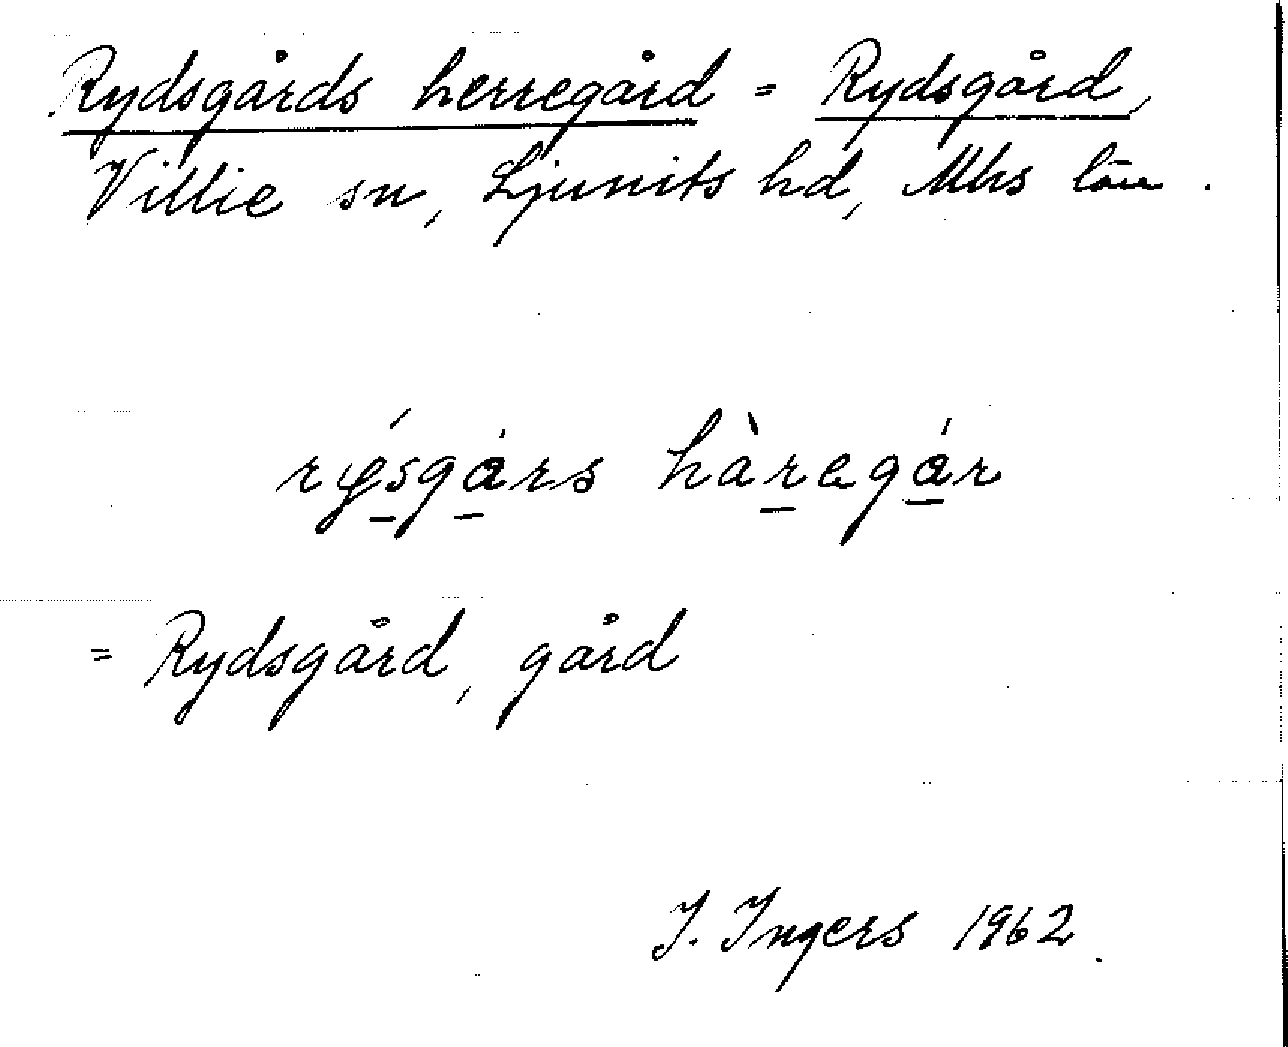 Rydsgårds herregård = Rydsgård,
Villie sn, Ljunits hd, Mhs län.
rýsgárs hàregár
= Rydsgård, gård
I. Ingers 1962.